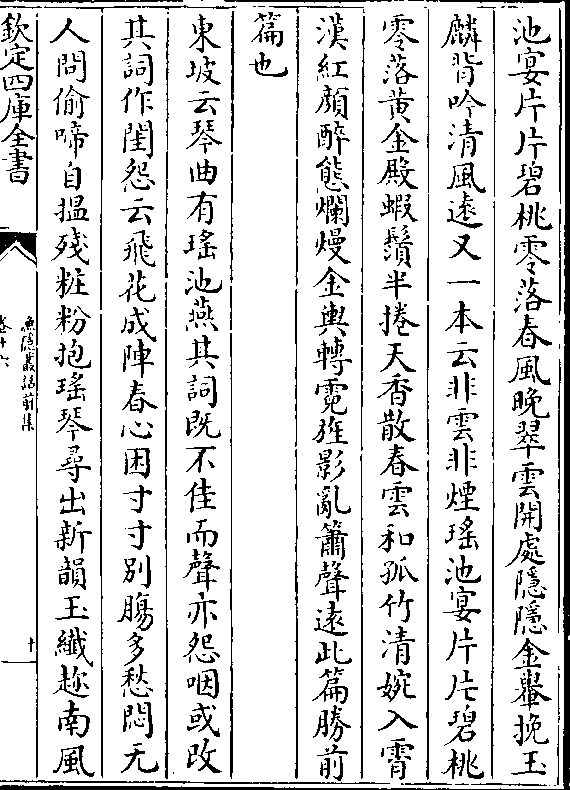 池宴片片碧桃零落春風晚翠雲開處隱隱金轝挽玉
麟背吟清風遠又一本云非雲非煙瑶池宴片片碧桃
零落黄金殿蝦鬚半捲天香散春雲和孤竹清婉入霄
漢紅顔醉態爛熳金輿轉霓旌影亂簫聲遠此篇勝前
篇也
東坡云琴曲有瑶池燕其詞既不佳而聲亦怨咽或改
其詞作閨怨云飛花成陣春心困寸寸別腸多愁悶无
人問偷啼自搵殘粧粉抱瑶琴尋出新韻玉纖趂南風
欽定四庫全書
漁隱叢話前集
卷十六
十